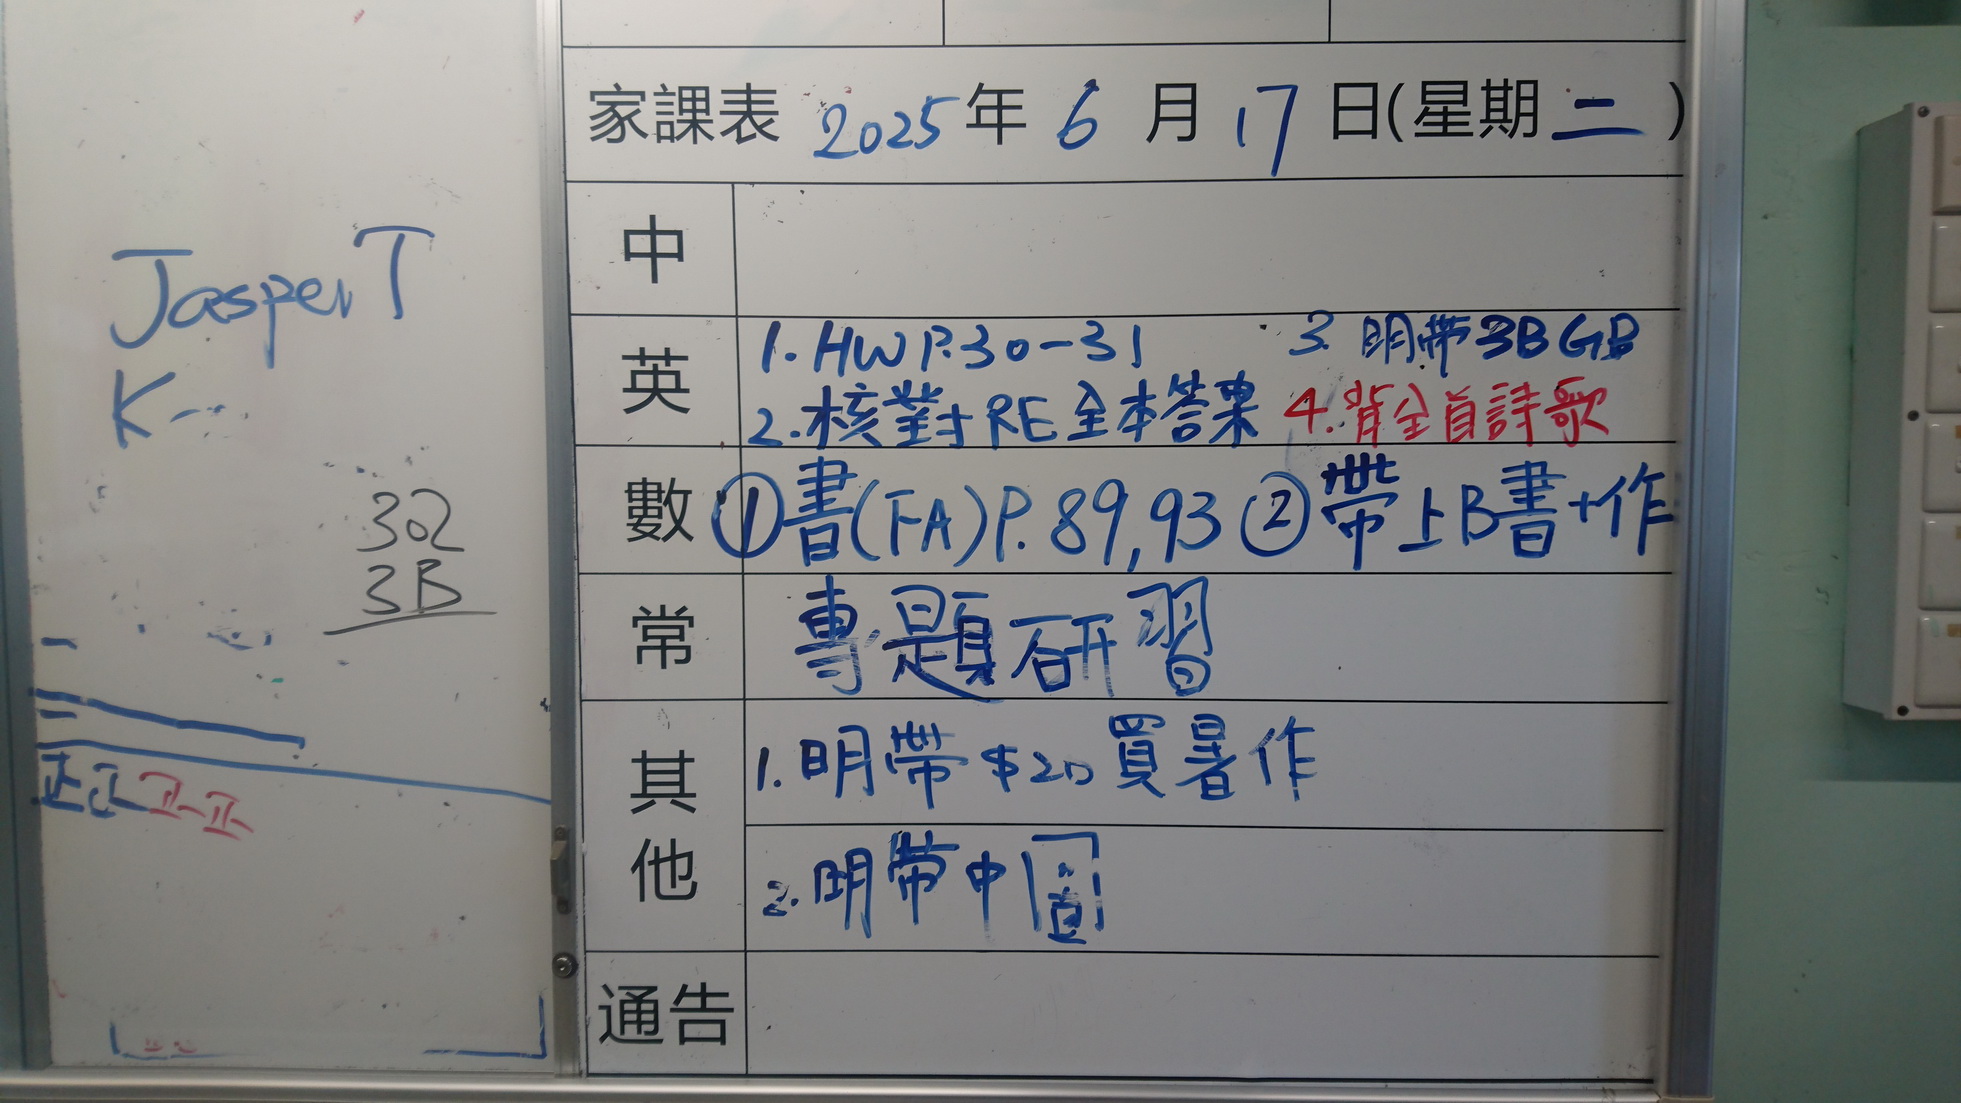 家課表 2025年 6 月 17 日(星期二)
中
英
1. HW P.30-31
3. 明帶3B GB
2. 核對RE全本答案
4. 背全首詩歌
數 ①書(FA)P. 89,93 ②帶上B書+作
常 專題研習
其他
1. 明帶$20買暑作
2. 明帶中圖
通告
Jasper T
K
302
3B
正正